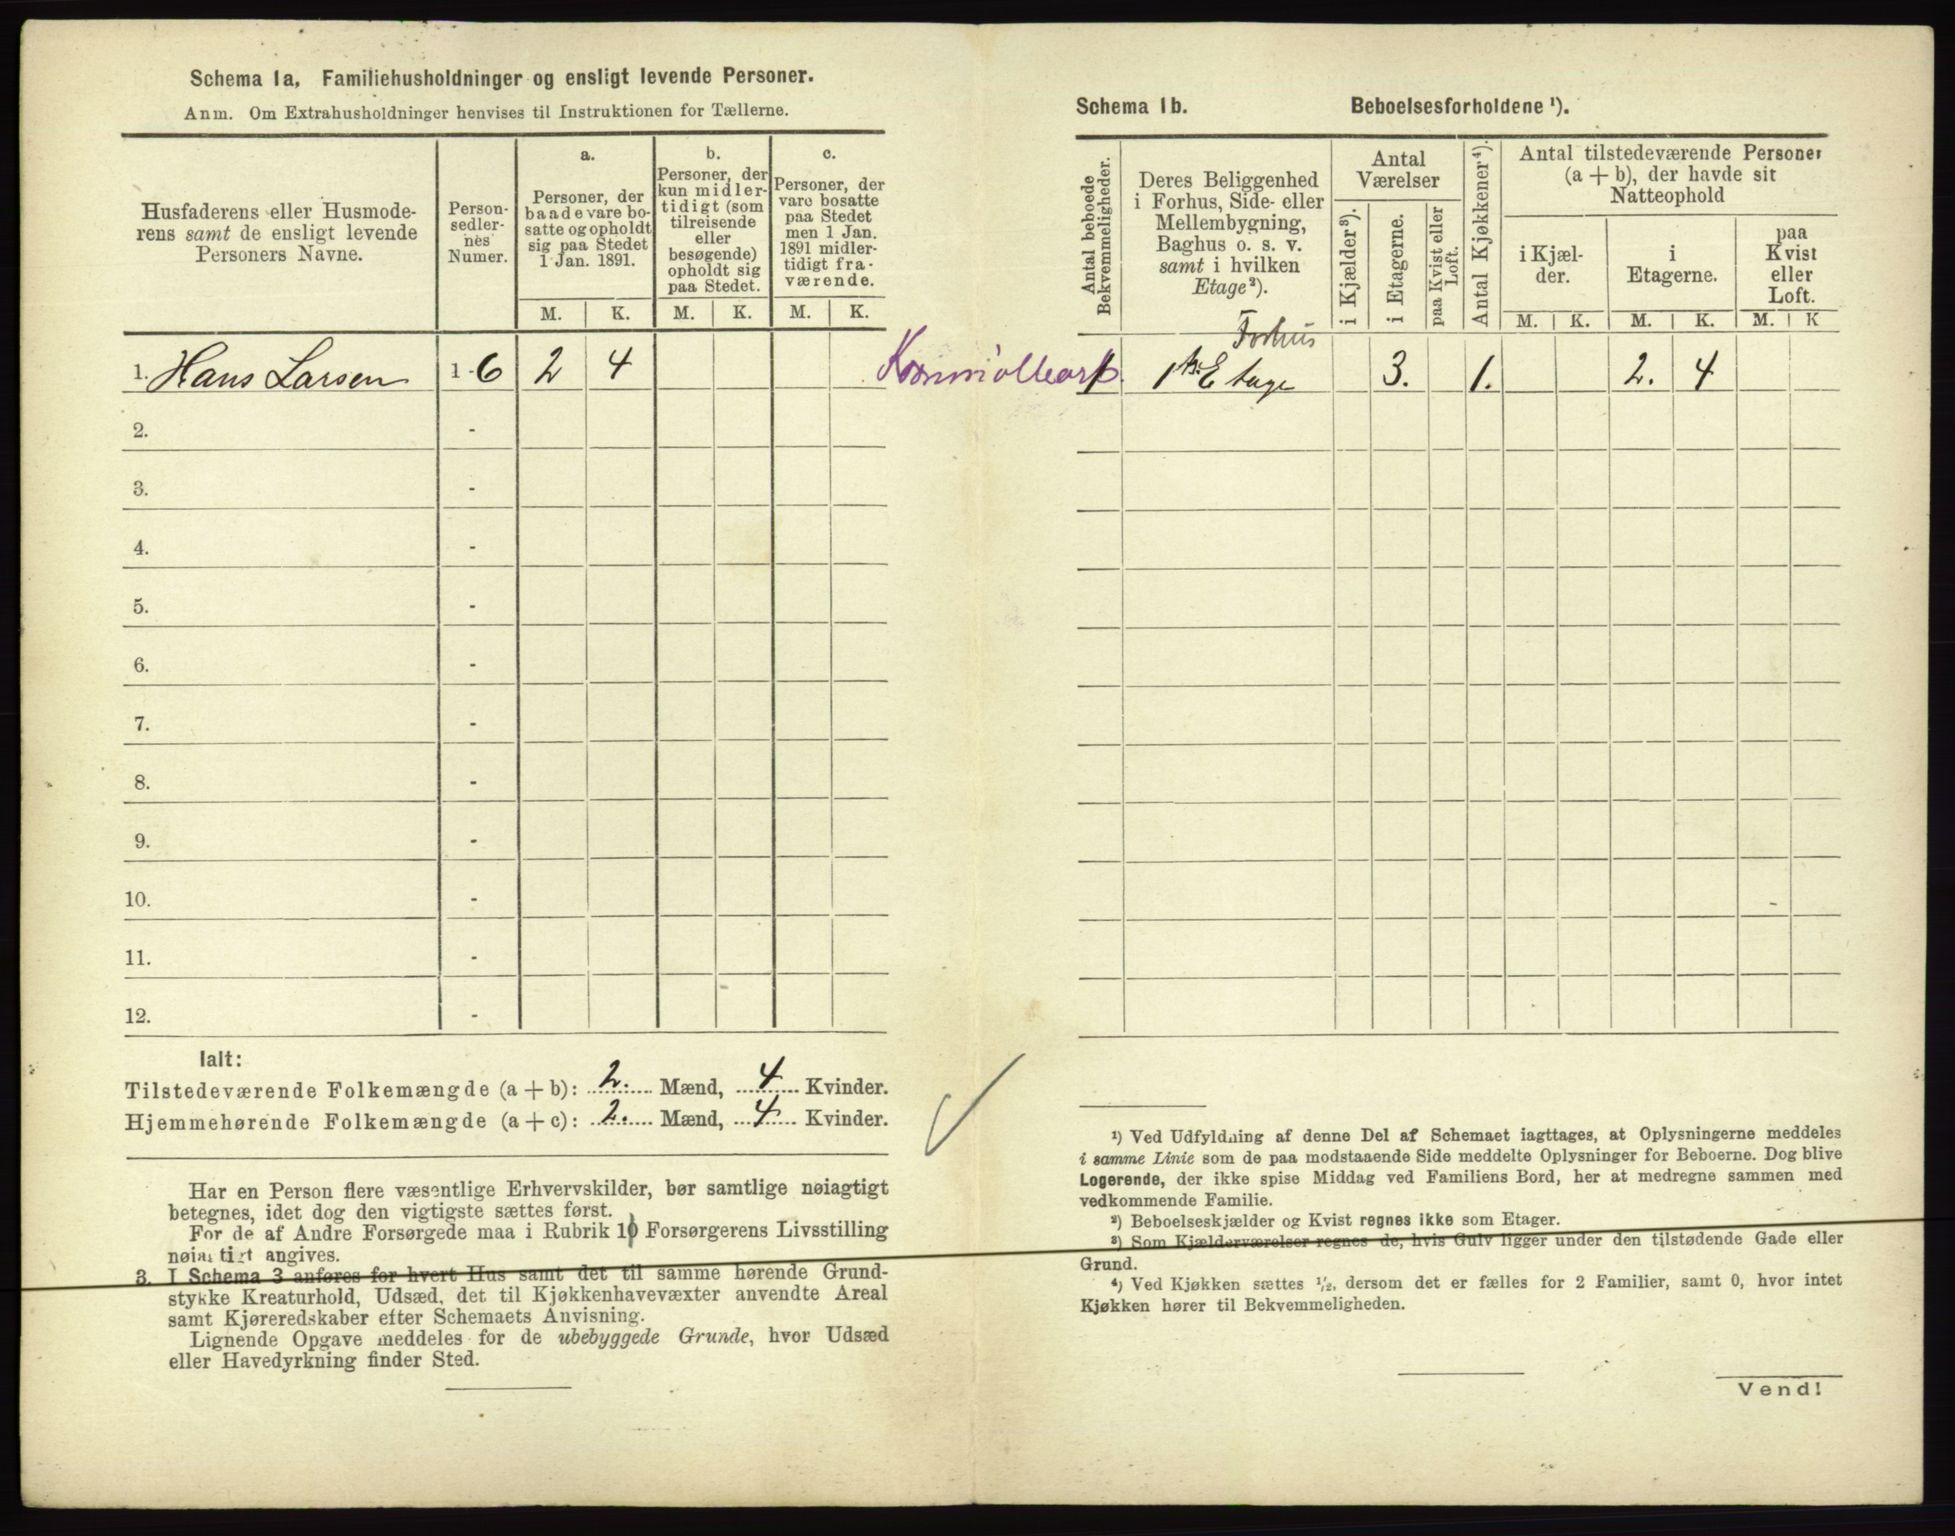 Schema 1a, Familiehusholdninger og ensligt levende Personer.
Anm. Om Extrahusholdninger henvises til Instruktionen for Tællerne.
Husfaderens eller Husmode-
rens samt de ensligt levende
Personers Navne.
Person-
sedler-
nes
Numer.
a.
Personer, der
baade vare bo-
satte og opholdt
sig paa Stedet
1 Jan. 1891.
b.
Personer, der
kun midler-
tidigt (som
tilreisende
eller
besøgende)
opholdt sig
paa Stedet.
c.
Personer, der
vare bosatte
paa Stedet
men 1 Jan.
1891 midler-
tidigt fra-
værende.
M. K. M. K. M. K.
1. Hans Larsen 1-6 2 4
2. -
3. -
4. -
5. -
6. -
7. -
8. -
9. -
10. -
11. -
12. -
Ialt:
Tilstedeværende Folkemængde (a + b): 2. Mænd, 4 Kvinder.
Hjemmehørende Folkemængde (a + c): 2. Mænd, 4 Kvinder.
Har en Person flere væsentlige Erhvervskilder, bør samtlige nøiagtigt
betegnes, idet dog den vigtigste sættes først.
For de af Andre Forsørgede maa i Rubrik 10 Forsørgerens Livsstilling
nøiagtigt angives.
3. I Schema 3 anføres for hvert Hus samt det til samme hørende Grund-
stykke Kreaturhold, Udsæd, det til Kjøkkenhavevæxter anvendte Areal
samt Kjøreredskaber efter Schemaets Anvisning.
Lignende Opgave meddeles for de ubebyggede Grunde, hvor Udsæd
eller Havedyrkning finder Sted.
Schema 1b. Beboelsesforholdene ¹).
Antal beboede
Bekvemmeligheder.
Deres Beliggenhed
i Forhus, Side- eller
Mellembygning,
Baghus o. s. v.
samt i hvilken
Etage²).
Antal
Værelser
i Kjælder³).
i Etagerne.
paa Kvist eller
Loft.
Antal Kjøkkener⁴).
Antal tilstedeværende Personer
(a + b), der havde sit
Natteophold
i Kjæl-
der.
i
Etagerne.
paa
Kvist
eller
Loft.
M. K. M. K. M. K
Forhus
1 1ste Etage 3. 1. 2. 4
¹) Ved Udfyldning af denne Del af Schemaet iagttages, at Oplysningerne meddeles
i samme Linie som de paa modstaaende Side meddelte Oplysninger for Beboerne. Dog blive
Logerende, der ikke spise Middag ved Familiens Bord, her at medregne sammen med
vedkommende Familie.
²) Beboelseskjælder og Kvist regnes ikke som Etager.
³) Som Kjælderværelser regnes de, hvis Gulv ligger under den tilstødende Gade eller
Grund.
⁴) Ved Kjøkken sættes ½, dersom det er fælles for 2 Familier, samt 0, hvor intet
Kjøkken hører til Bekvemmeligheden.
Vend!